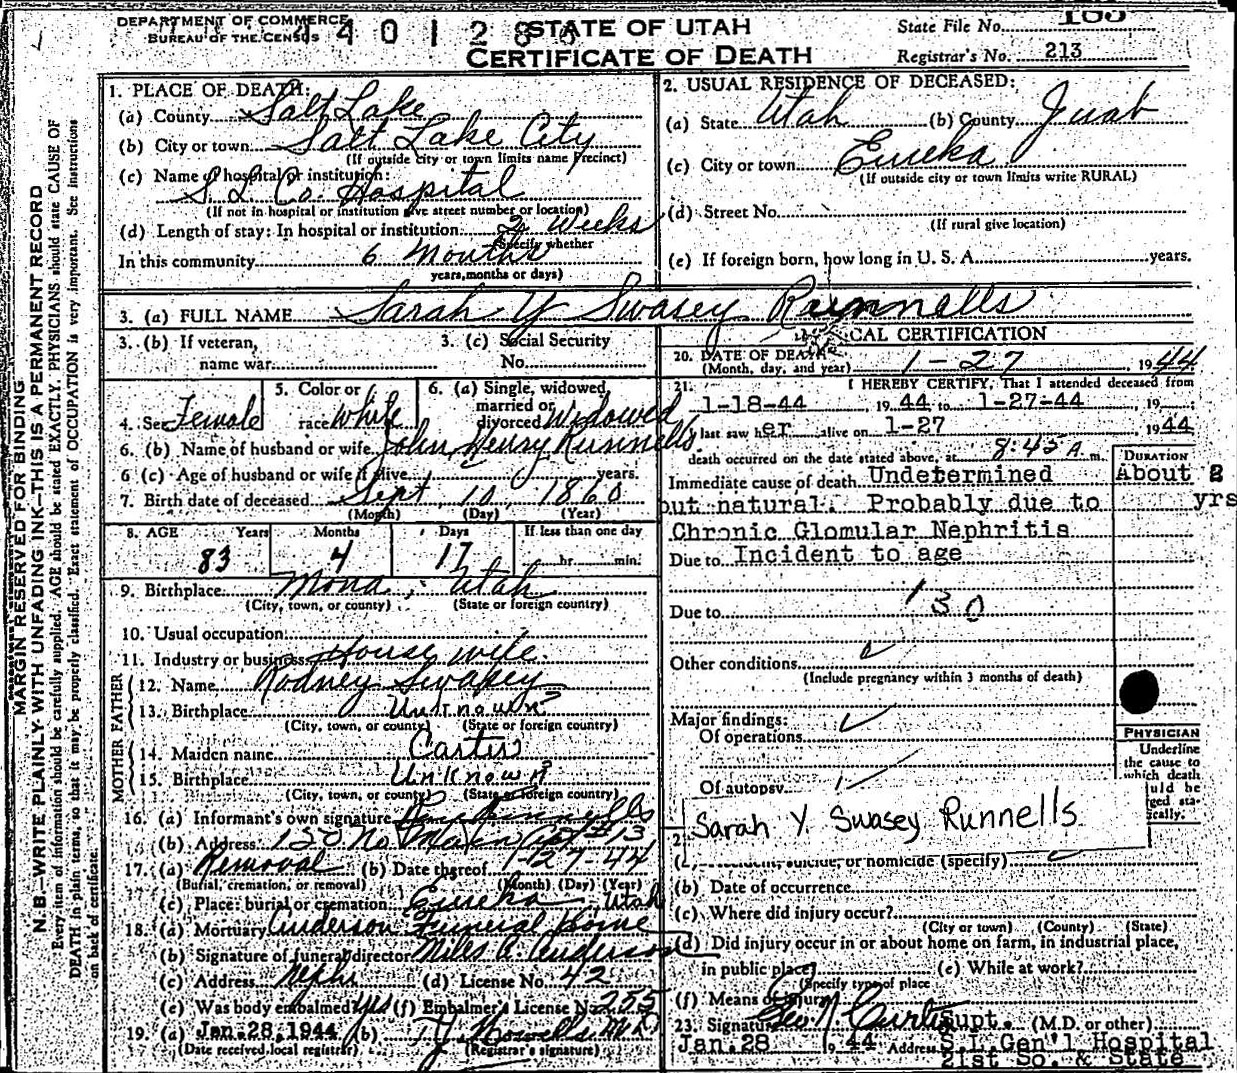 DEPARTMENT OF COMMERCE
BUREAU OF THE CENSUS
STATE OF UTAH
CERTIFICATE OF DEATH
State File No.
Registrar's No. 213
MARGIN RESERVED FOR BINDING
N.B—WRITE PLAINLY WITH UNFADING INK—THIS IS A PERMANENT RECORD
Every item of information should be carefully supplied. AGE should be stated EXACTLY. PHYSICIANS should state CAUSE OF
DEATH in plain terms, so that it may be properly classified. Exact statement of OCCUPATION is very important. See instructions
on back of certificate.
1. PLACE OF DEATH:
(a) County Salt Lake
(b) City or town Salt Lake City
(If outside city or town limits name Precinct)
(c) Name of hospital or institution:
S. L. Co. Hospital
(If not in hospital or institution give street number or location)
(d) Length of stay: In hospital or institution 2 Weeks
(Specify whether
In this community 6 Months
years, months or days)
2. USUAL RESIDENCE OF DECEASED:
(a) State Utah (b) County Juab
(c) City or town Eureka
(If outside city or town limits write RURAL)
(d) Street No.
(If rural give location)
(e) If foreign born, how long in U. S. A. years.
3. (a) FULL NAME Sarah Y Swasey Runnells
3. (b) If veteran,
name war
3. (c) Social Security
No.
4. Sex Female
5. Color or
race White
6. (a) Single, widowed,
married or
divorced Widowed
6. (b) Name of husband or wife John Henry Runnells
6 (c) Age of husband or wife if alive years.
7. Birth date of deceased Sept 10 1860
(Month) (Day) (Year)
8. AGE Years Months Days If less than one day
83 4 17 hr. min.
9. Birthplace Mona, Utah
(City, town, or county) (State or foreign country)
10. Usual occupation
11. Industry or business House wife
FATHER
12. Name Rodney Swasey
13. Birthplace Unknown
(City, town, or county) (State or foreign country)
MOTHER
14. Maiden name Carter
15. Birthplace Unknown
(City, town, or county) (State or foreign country)
16. (a) Informant's own signature Runnells
(b) Address 150 No Main Apt #13
17. (a) Removal (b) Date thereof 1-27-44
(Burial, cremation, or removal) (Month) (Day) (Year)
(c) Place: burial or cremation Eureka, Utah
18. (a) Mortuary Anderson Funeral Home
(b) Signature of funeral director Miles A. Anderson
(c) Address Nephi (d) License No. 42
(e) Was body embalmed yes (f) Embalmer's License No. 255
19. (a) Jan. 28, 1944 (b) T. J. Howells M.D.
(Date received local registrar) (Registrar's signature)
MEDICAL CERTIFICATION
20. DATE OF DEATH 1-27 1944
(Month, day, and year)
21. I HEREBY CERTIFY, That I attended deceased from
1-18-44, 1944 to 1-27-44, 19
I last saw her alive on 1-27 1944
death occurred on the date stated above, at 8:45 A. m.
DURATION
Immediate cause of death Undetermined About 2
but natural. Probably due to yrs
Chronic Glomular Nephritis
Due to Incident to age
130
Due to
Other conditions
(Include pregnancy within 3 months of death)
Major findings:
Of operations
Of autopsy
PHYSICIAN
Underline
the cause to
which death
Sarah Y Swasey Runnells
suicide, or homicide (specify)
(b) Date of occurrence
(c) Where did injury occur?
(City or town) (County) (State)
(d) Did injury occur in or about home on farm, in industrial place,
in public place? (e) While at work?
(Specify type of place
(f) Means of Injury
23. Signature Geo N Curtis Supt. (M.D. or other)
Jan. 28 1944 Address S.L. Gen'l Hospital
21st So. & State